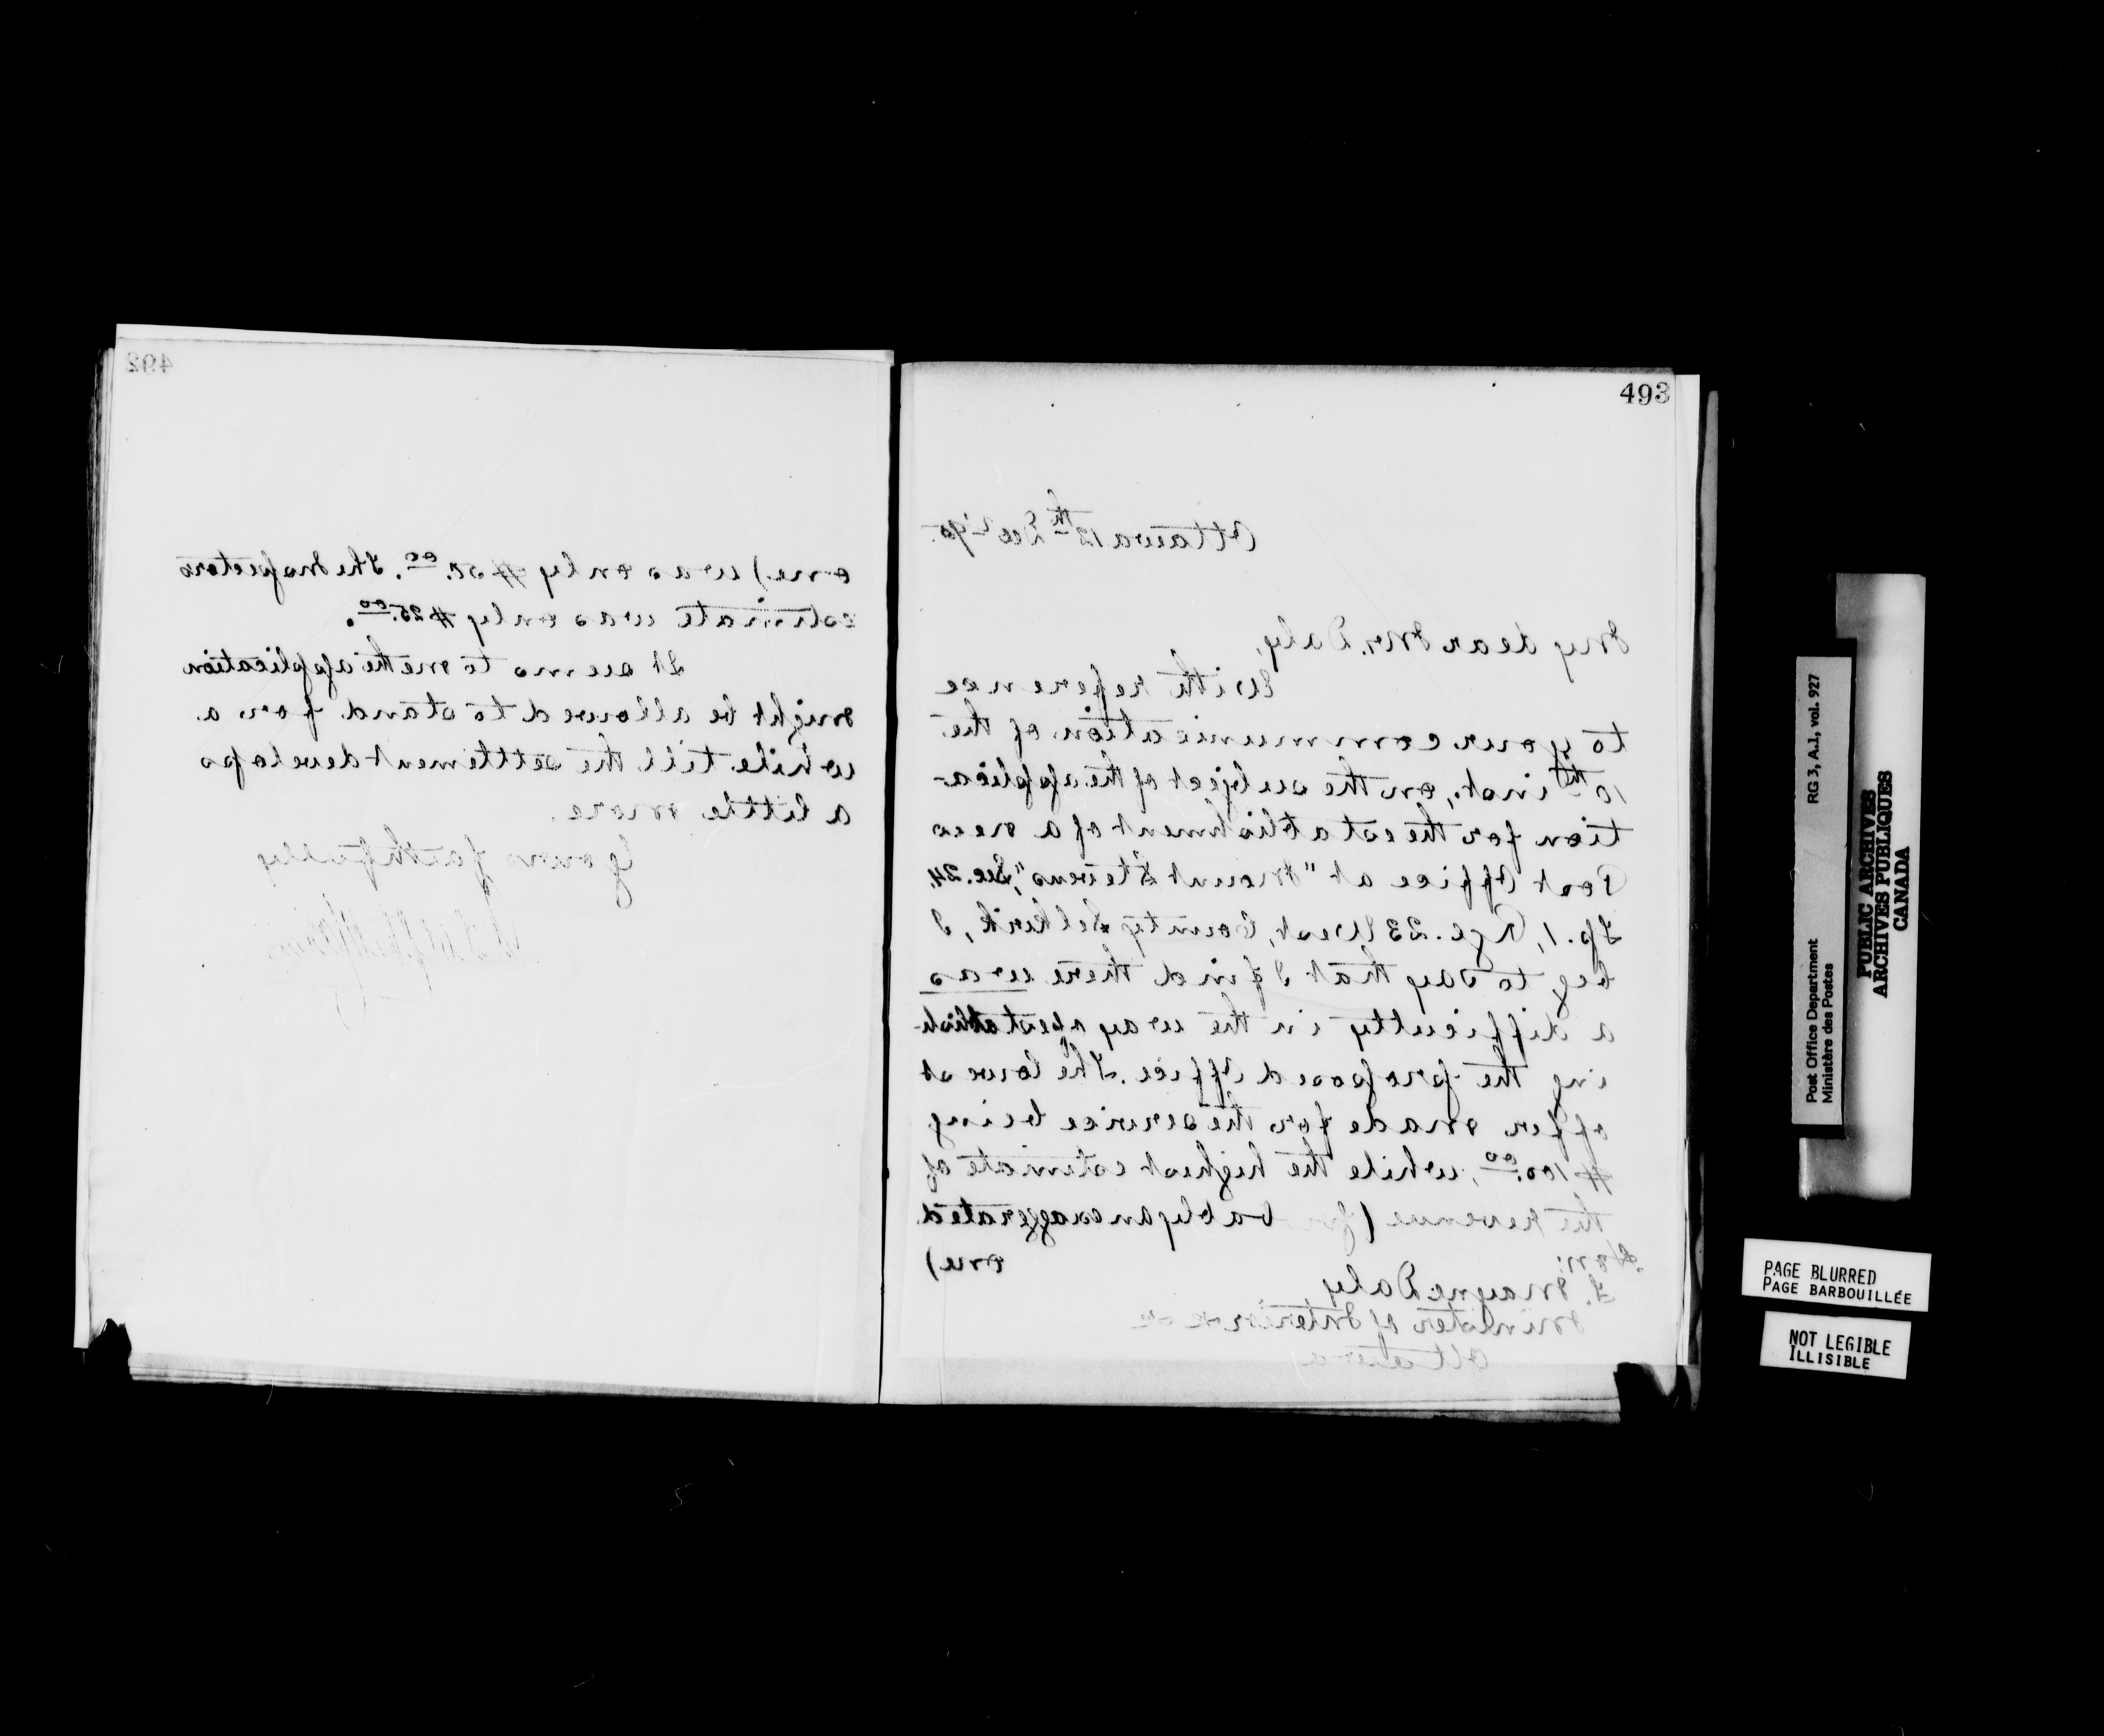 493
Ottawa 12th Decr '90.
My dear Mr. Daly,
With reference
to your communication of the
10th inst., on the subject of the applica-
tion for the establishment of a new
Post Office at "Mount Stevens", Sec. 24,
Tp. 1, Rge. 23 West, County Selkirk, I
beg to say that I find there was
a difficulty in the way of establish-
ing the proposed Office. The lowest
offer made for the service being
$100.00, while the highest estimate of
the revenue ( bably an exaggerated
one)
Hon:
T. Mayne Daly,
Minister of Interior &c &c
Ottawa
492
one) was only $50.00. The Inspectors
estimate was only $25.00.
It seems to me the application
might be allowed to stand for a
while till the settlement develops
a little more.
Yours faithfully
Post Office Department
Ministère des Postes
RG 3, A.1, vol. 927
PUBLIC ARCHIVES
ARCHIVES PUBLIQUES
CANADA
PAGE BLURRED
PAGE BARBOUILLÉE
NOT LEGIBLE
ILLISIBLE